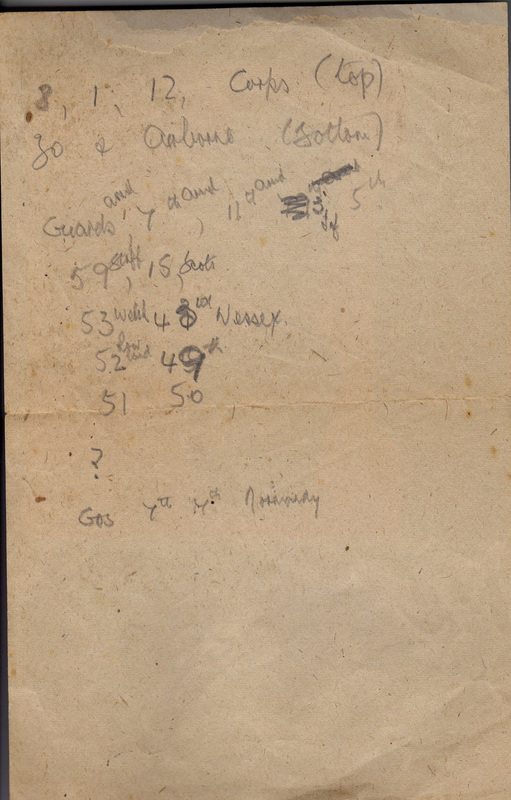 8, 1, 12, Corps (top)
30 & Airborne (Bottom)
Guards, 7th, 11th 3 Inf 5th
59 Staff, 15, Scots
53 Welsh 43rd Wessex.
52 Lowland 49th
51 50
?
Gds 7th Normandy